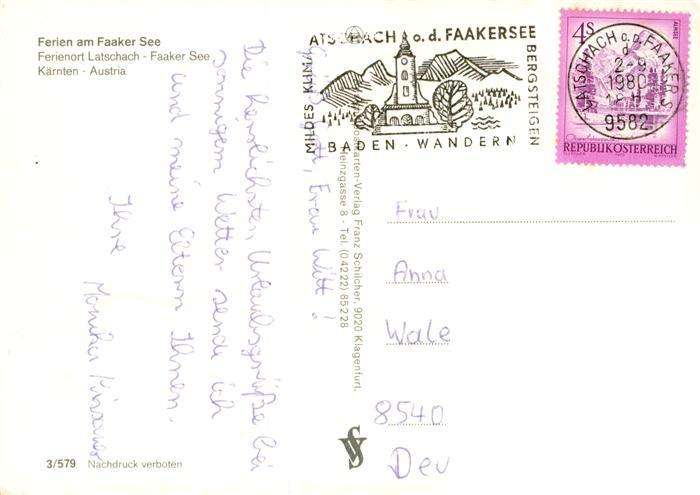 Ferien am Faaker See
Ferienort Latschach - Faaker See
Kärnten - Austria
Grüß Gott, Frau Witt!
Die herzlichsten Urlaubsgrüße bei
sonnigem Wetter sende ich
und meine Eltern Ihnen.
Ihre
Monika
3/579 Nachdruck verboten
ATSCHACH o. d. FAAKERSEE
MILDES KLIMA
BERGSTEIGEN
BADEN · WANDERN
4S
ALMSEE
REPUBLIK ÖSTERREICH
ATSCHACH o. d. FAAKER S
2-9
1980
9582
Postkarten-Verlag Franz Schilcher, 9020 Klagenfurt,
Heinzgasse 8 - Tel. (0 42 22) 85 2 28
Frau
Anna
Wale
8540
Dev